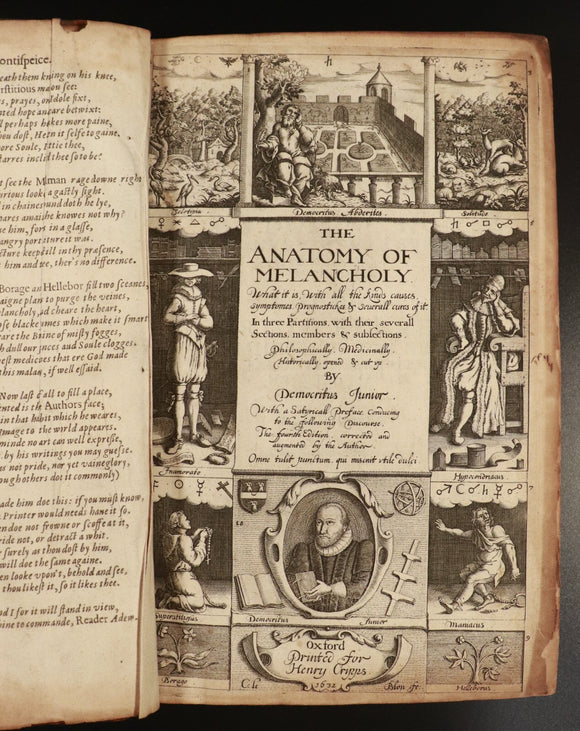 ontispeice.
eath them kn ng on his knee,
rstitious m ou see:
s, prayes, on dole fixt,
ted hope an care betwixt:
l perhaps h kes more paine,
hou dost, He n it selfe to gaine.
ore Soule, I ttie thee,
tarres incl thee so to be?
t see the M man rage downe right
urtous look a gastly sight.
in chaines und doth he lye,
pares ama he knowes not why?
e him, for s in a glasse,
angry port ure it was.
ture keep ill in thy presence,
him and ee, ther's no difference.
Borage an Hellebor fill two sceanes,
aigne plan to purge the veines,
elancholy, ad cheare the heart,
ose blacke mes which make it smart
are the B ine of misty fogges,
h dull our ces and Soule clogges.
est medic es that ere God made
this mala , if well assaid.
Now last all to fill a place,
ented is th Authors face;
in that habit which he weares,
Image to the world appeares.
minde no art can well expresse,
by his writings you may guesse.
as not pride, nor yet vaineglory,
ough others doe it commonly)
ade him doe this: if you must know,
Printer would needs have it so.
en doe not frowne or scoffe at it,
ride not, or detract a whit.
r surely as thou dost by him,
will doe the same againe.
en looke upon't, behold and see,
thou likest it, so it likes thee.
d I for it will stand in view,
ine to commande, Reader Adew.
Zelotypia
Democritus Abderites
Solitudo
THE
ANATOMY OF
MELANCHOLY
What it is, With all the kinds causes,
symptomes, prognostickes & severall cures of it.
In three Partitions, with their severall
Sections, members & subsections.
Philosophically, Medicinally,
Historically, opened & cut up.
BY
Democritus Junior.
With a Satyricall Preface, Conducing
to the following Discourse.
The fourth Edition, corrected and
augmented by the Author.
Omne tulit punctum, qui miscuit utile dulci
Inamorato
Hypocondriacus
Superstitiosus
Democritus Junior
Maniacus
Borago
Oxford
Printed for
Henry Cripps
1632
Helleborus
C. le Blon fe.